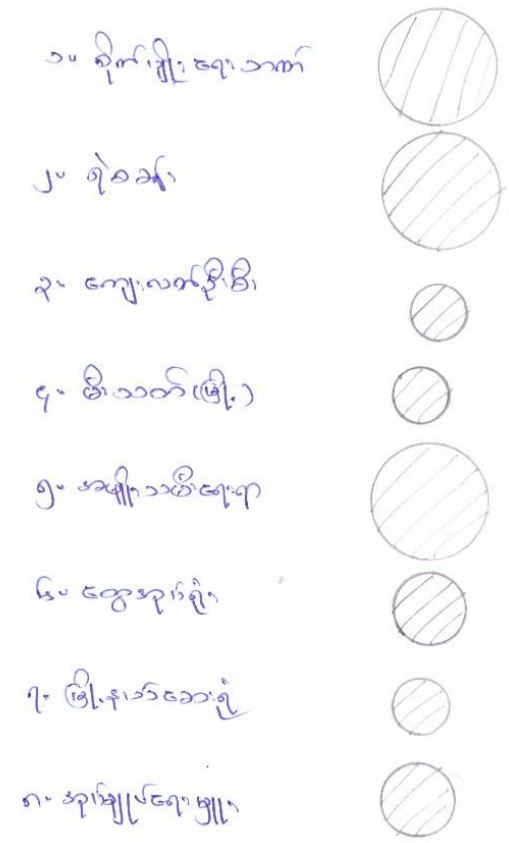 ၁။ စိုက်ပျိုးရေးဘဏ်
၂။ ရဲစခန်း
၃။ ကျေးလက်ဦးစီး
၄။ မီးသတ်(မြို့)
၅။ အမျိုးသမီးရေးရာ
၆။ ထွေအုပ်ရုံး
၇။ မြို့နယ်ဆေးရုံ
၈။ အုပ်ချုပ်ရေးမှူး